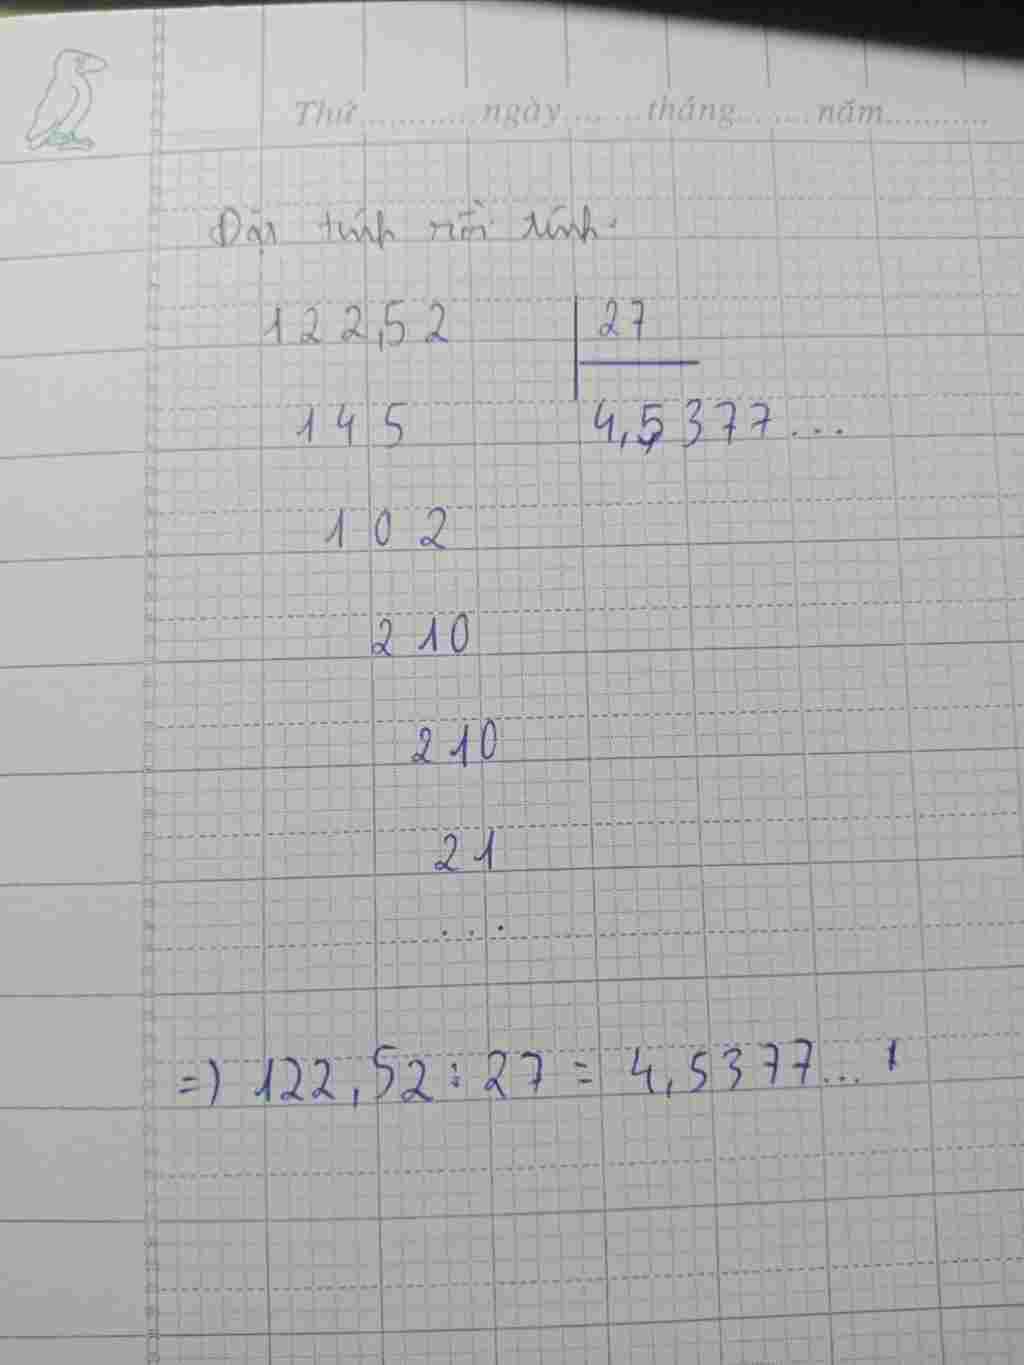 Thứ............ngày........tháng........năm...........
Đặt tính rồi tính:
122,52 | 27
145 4,5377...
102
210
210
21
...
=) 122,52 : 27 = 4,5377...